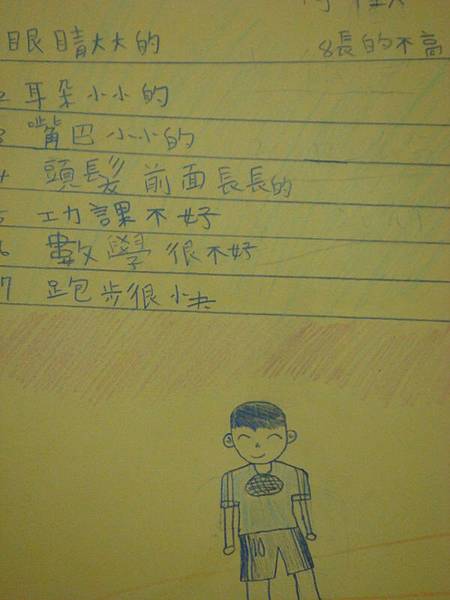 眼睛大大的
8長的不高
2 耳朵小小的
3 嘴巴小小的
4 頭髮前面長長的
5 功課不好
6 數學很不好
7 跑步很
10